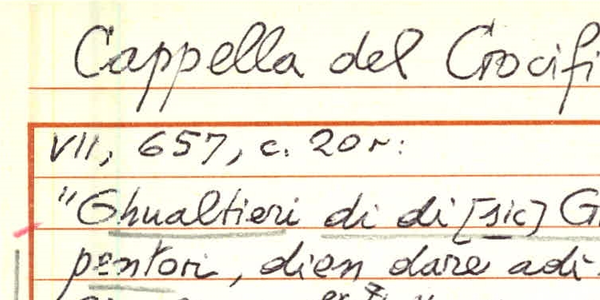 Cappella del Crocifi
VII, 657, c. 20r:
"Ghualtieri di di [sic] G
pentori, dien dare adi